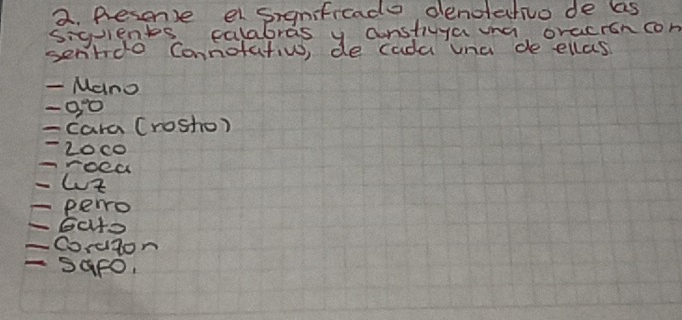 2. Presente el significado denotativo de las
siguientes palabras y construya una oración con
sentido connotativo, de cada una de ellas.
- Mano
- ojo
- cara (rostro)
- Loco
- roca
- luz
- perro
- Gato
- Corazon
- sapo.